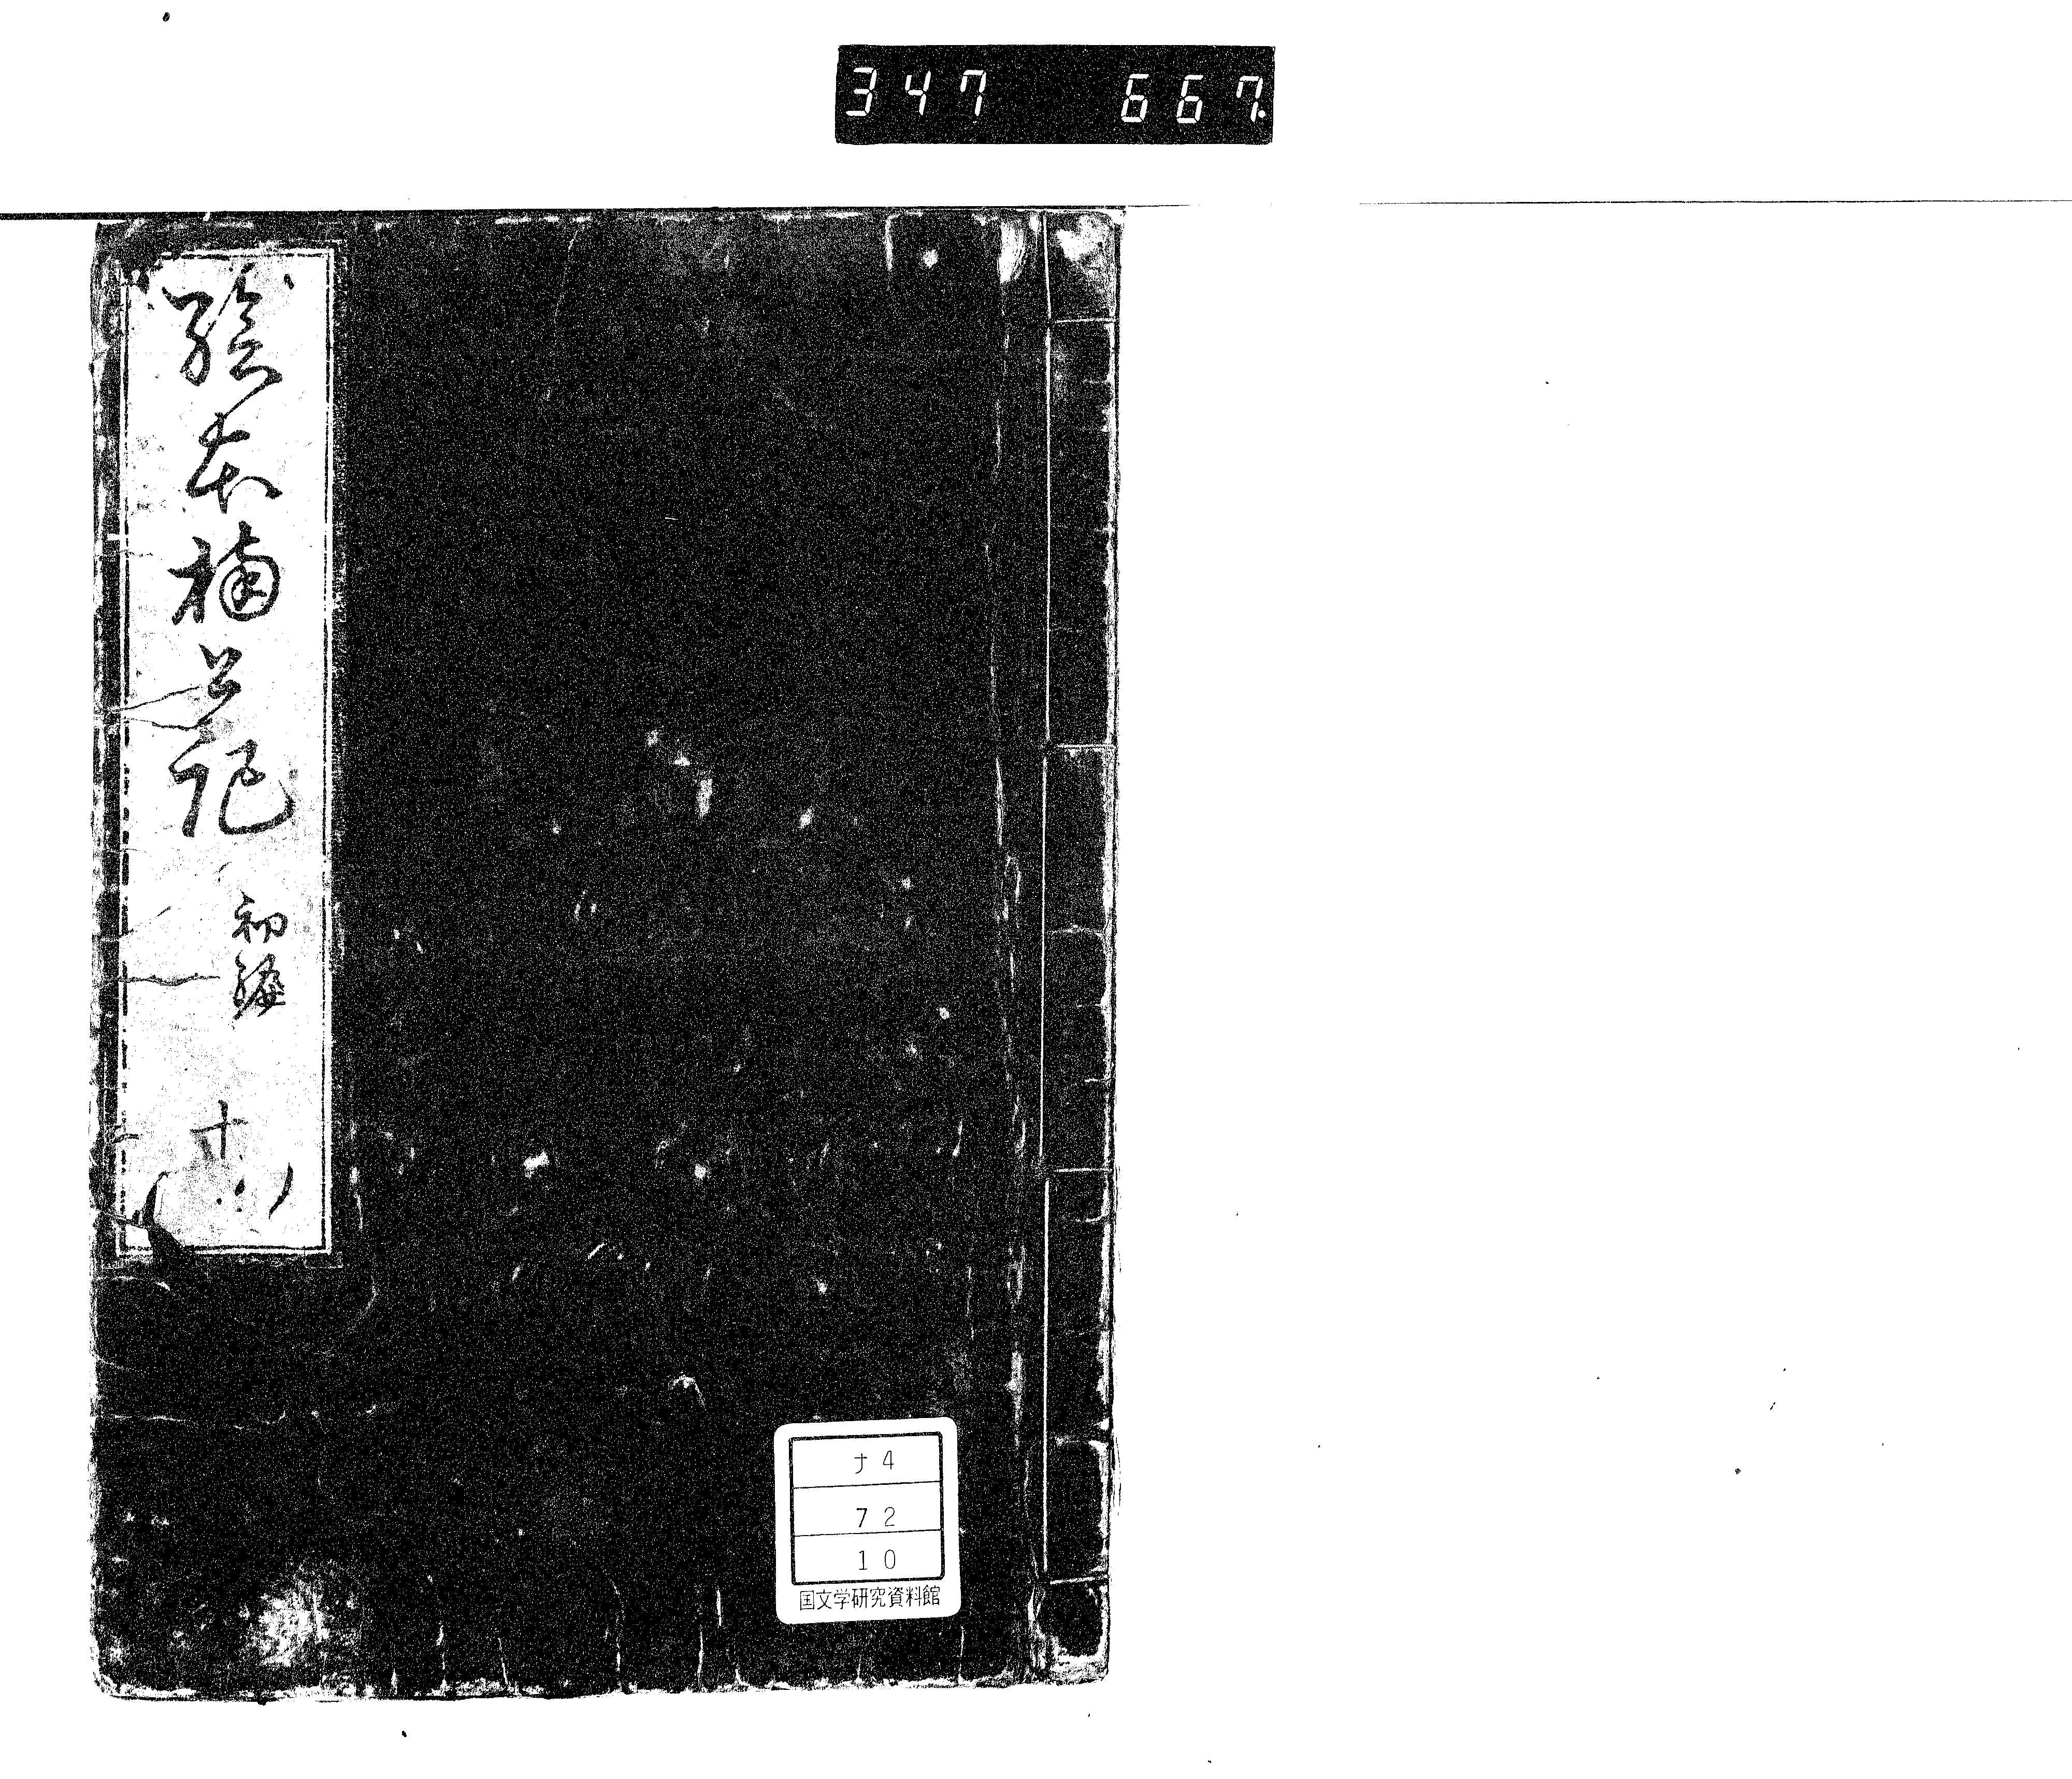 347 667.
繪本楠公記 初編 十
ナ4
72
10
国文学研究資料館